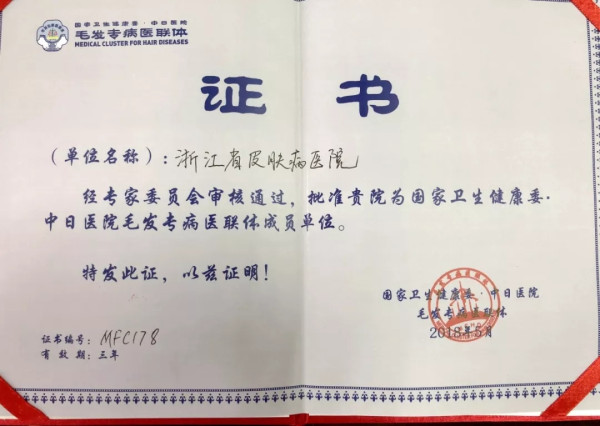 国家卫生健康委·中日医院
毛发专病医联体
MEDICAL CLUSTER FOR HAIR DISEASES
证书
(单位名称):浙江省皮肤病医院
经专家委员会审核通过,批准贵院为国家卫生健康委·
中日医院毛发专病医联体成员单位。
特发此证,以兹证明!
国家卫生健康委·中日医院
毛发专病医联体
2018年5月
证书编号:MFC178
有效期:三年